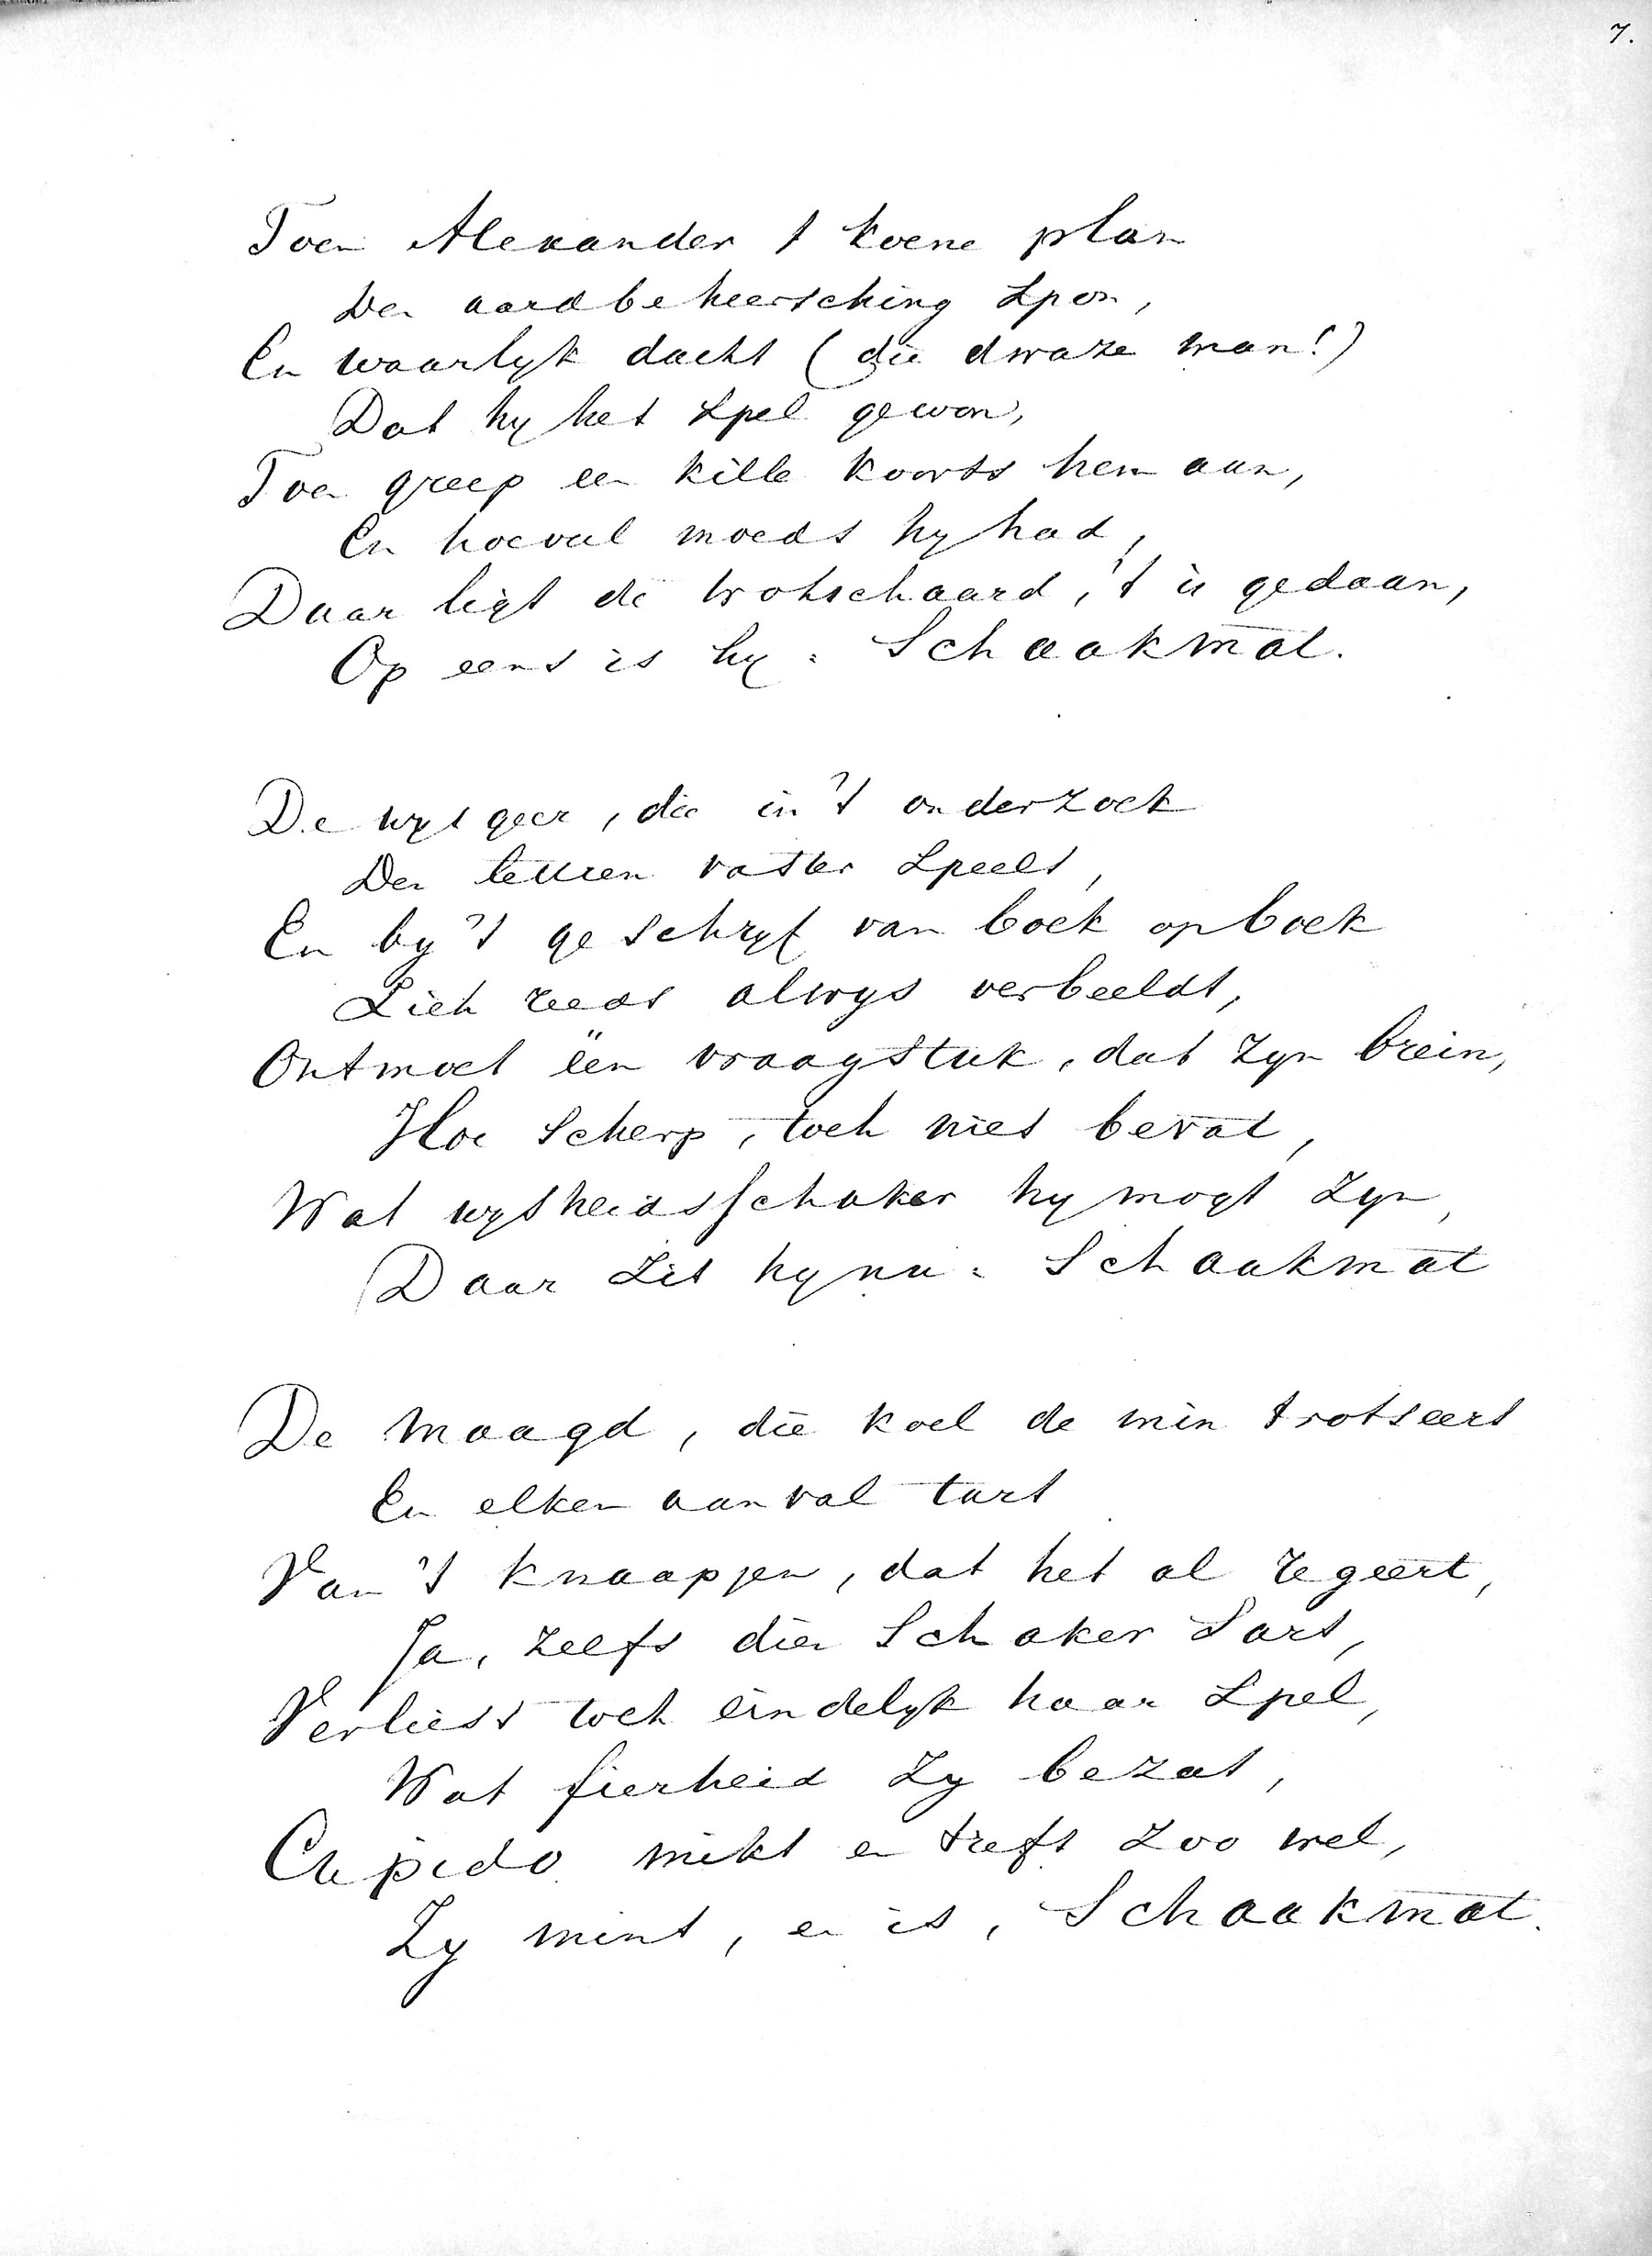 7.
Toen Alexander 't koene plan
Der aardbeheersching spon,
En waarlyk dacht (die dwaze man!)
Dat hy het spel gewon,
Toen greep een kille koorts hem aan,
En hoeveel moeds hy had,
Daar ligt de trotschaard, 't is gedaan,
Op eens is hy: Schaakmat.
De wysgeer, die in 't onderzoek
Der letteren vaster speelt,
En by 't geschryf van boek op boek
Zich reeds alwys verbeeldt,
Ontmoet één vraagstuk, dat zyn brein,
Hoe scherp, toch niet bevat,
Wat wysheidsschaker hy mogt zyn,
Daar zit hy nu: Schaakmat
De maagd, die koel de min trotseert
En elken aanval tart
Van 't knaapjen, dat het al regeert,
Ja, zelfs dien Schaker Sart,
Verliest toch eindelyk haar spel,
Wat fierheid zy bezat,
Cupido mikt en treft zoo wel,
Zy mint, en is, Schaakmat.